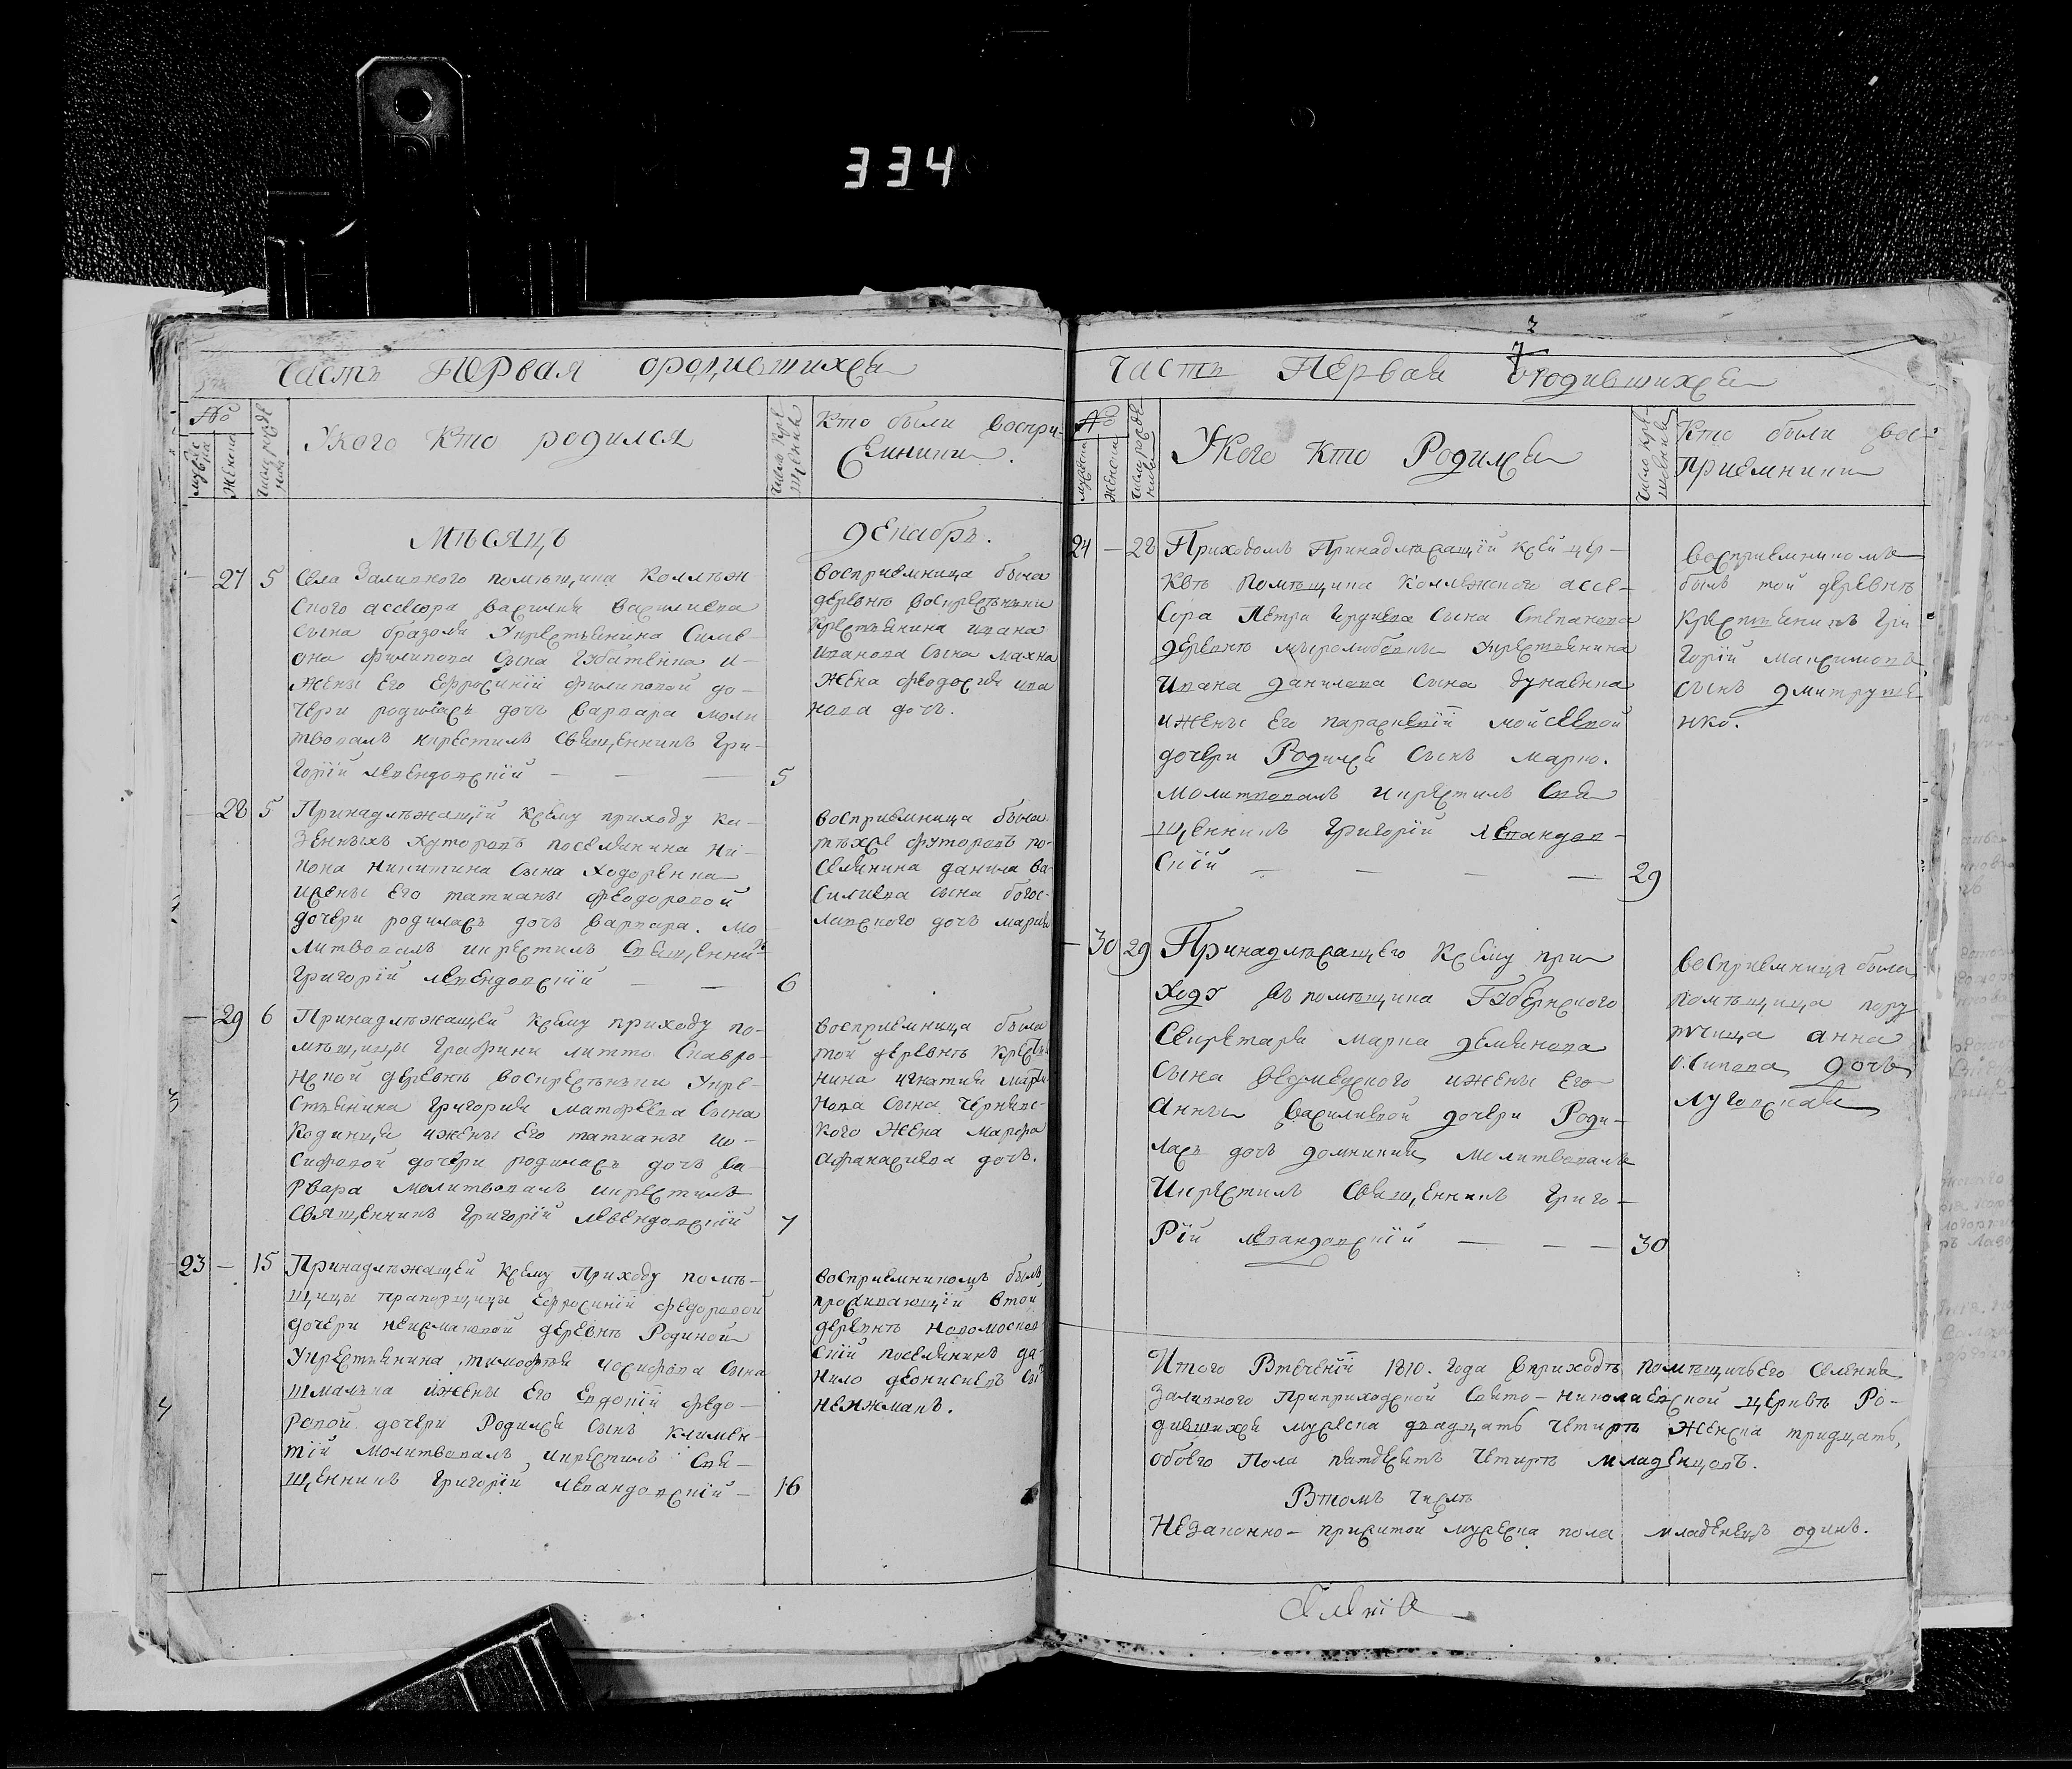 334
Часть Первая ородившихся
№
мужеска
женска
число рожде
нія
Укого кто родился
Число кре
щенія
Кто были воспри-
емники.
Мѣсяцъ
декабрь.
27 5 села Заливного помѣщика Коллежж
ского ассесора василия василиева
сына бразоля Укрестьянина Симе-
она филипова сына Губатенка и-
жены Его Ефросинїй филиповой до-
чери родилась дочь варвара моли
твовалъ икрестилъ священникъ Гри-
горїй левендовскїй — — — 5
восприемница была
деревнѣ воскресѣнки
крестьянина ивана
иванова сына махна
жена феодосия ива
нова дочь.
28 5 Принадлѣжащїй ксѣму приходу ка-
зенныхъ хуторовъ поселянина Ни-
кона никитина сына Ходоренка
ижены его татианы феодоровой
дочери родилась дочь варвара. Мо
литвовалъ икрестилъ священникъ
Григорїй левендовскїй — — 6
восприемница была
тѣхже футоровъ по-
селянина данила ва-
силиева сына богос-
лавского дочь мария
29 6 Принадлѣжащей ксѣму приходу по-
мѣщицы Графини литто Скавро-
нской деревнѣ воскресѣнки Укре-
стьянина Григория матфеева сына
Кодинця ижены Его татианы ио-
сифовой дочери родилась дочь ва-
рвара молитвовалъ икрестилъ
священникъ Григорїй левендовскїй 7
восприемница была
той деревнѣ крестья
нина игнатия марти
нова сына чернявс-
кого жена марфа
афанасиева дочь.
23 — 15 Принадлѣжащей ксѣму Приходу помѣ-
щицы прапорщицы Ефросинїй федоровой
дочери неизмаковой деревнѣ Родиной
Укрестьянина тимофѣя иосифова сына
шмалька ижены Его Евдокїй федо-
ровой дочери Родился сынъ климен-
тїй молитвовалъ, икрестилъ Свя-
щенникъ Григорїй левандовскїй — 16
восприемникомъ былъ
проживающїй втой
деревнѣ новомосков
скїй поселянинъ да-
нило деонисиевъ сы
нежмакъ.
7
Часть Первая ородившихся
№
мужеска
женска
число рожде
нія
Укого кто Родился
Число кре
щенія
Кто были вос-
приемники
24 — 28 Приходомъ Принадлѣжащїй ксей цер-
квѣ помѣщика коллежского ассе-
сора Петра Гордиева сына Степанова
деревнѣ миролюбовки Укрестьянина
Ивана данилова сына дунаенка
ижены Его парасковїй мойсеевой
дочери Родился сынъ марко.
молитвовалъ икрестилъ Свя
щенникъ Григорїй левандов-
скїй — — — — 29
восприемникомъ
былъ той деревнѣ
крестьянинъ Гри
горїй максимовъ
сынъ дмитруше
нко.
30 29 Принадлѣжащего ксѣму при
ходу въ помѣщика Губернского
Секретаря марка демянова
сына ведмедского ижены Его
Анны василиевой дочери Роди-
лась дочь домникия молитвовалъ
Икрестилъ Священникъ Григо-
рїй левандовскїй — — — 30
восприемница была
помѣщица пору
тчица анна
осипова дочь
луговская
Итого Втеченїй 1810. года вприходѣ помѣщичьего Селенка
Заливного Приприходской Свято-николаевской церквѣ Ро-
дившихся мужеска двадцать четирѣ женска тридцать,
обоего Пола пятдесятъ четирѣ младенцовъ.
Втомъ числѣ
Незаконно-прижитой мужеска пола младенецъ одинъ.